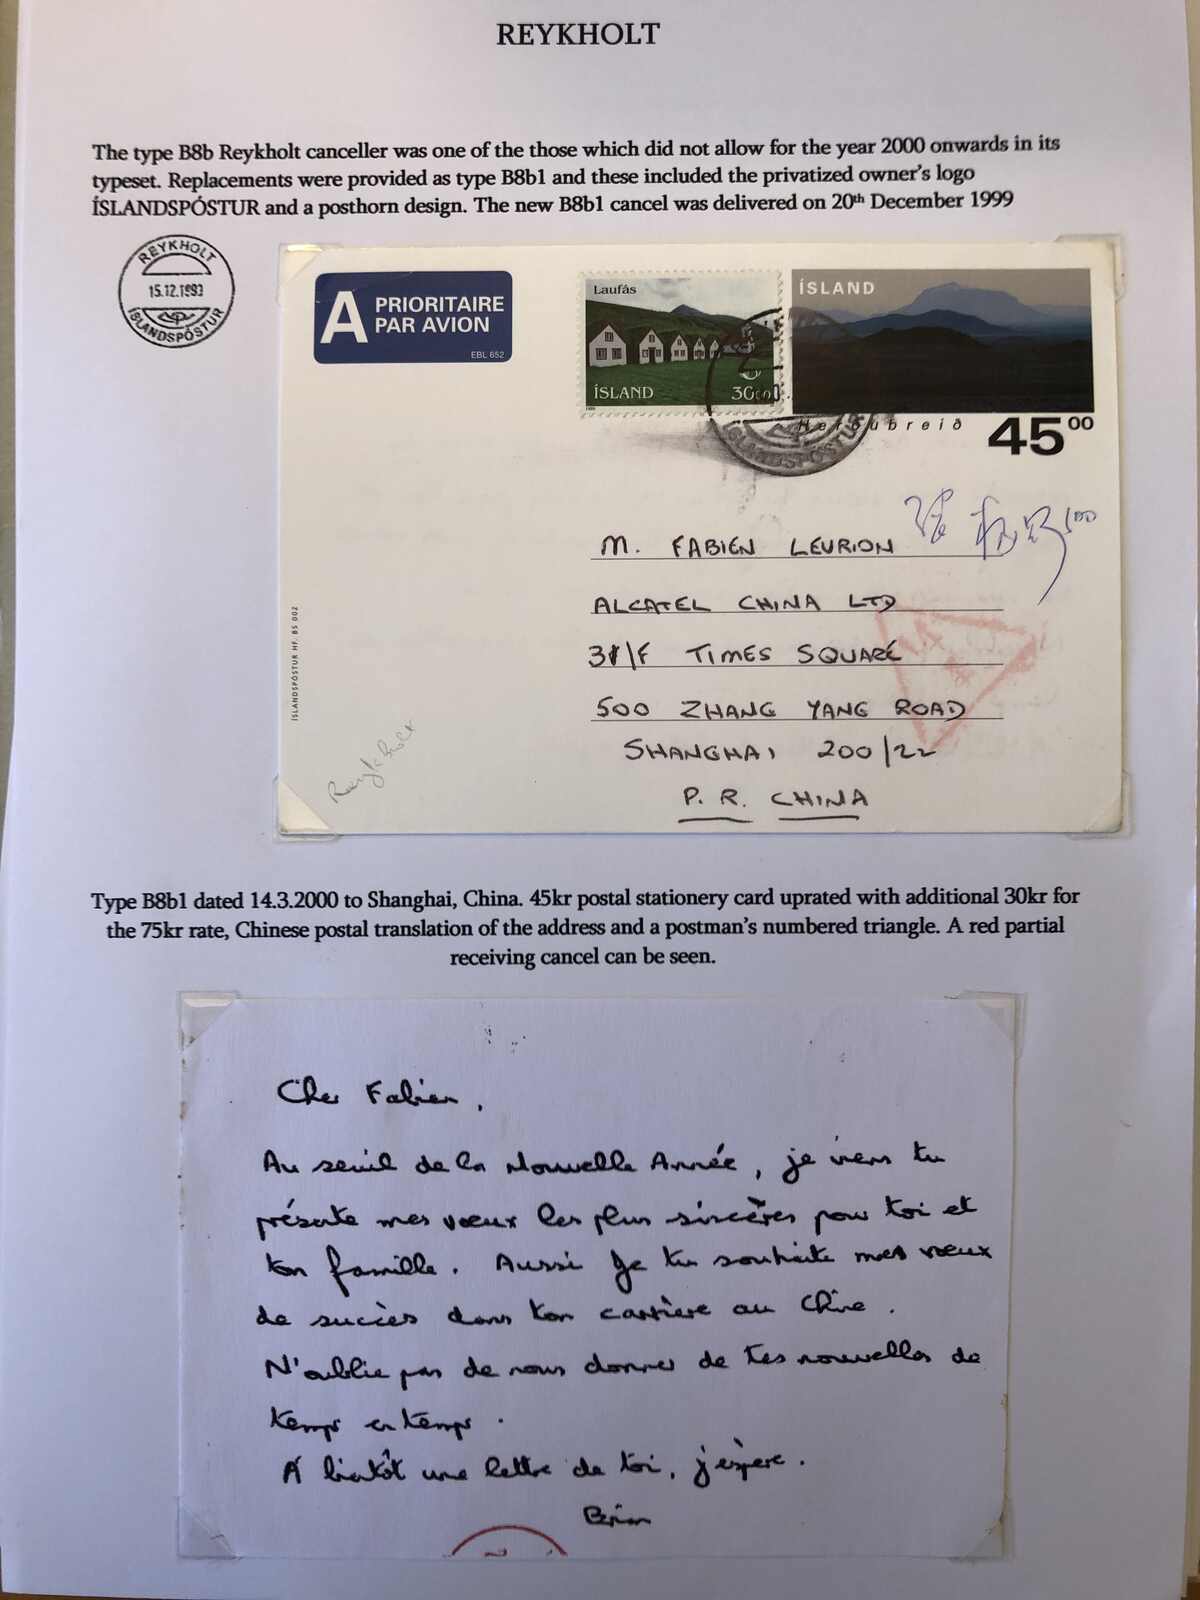 REYKHOLT
The type B8b Reykholt canceller was one of the those which did not allow for the year 2000 onwards in its
typeset. Replacements were provided as type B8b1 and these included the privatized owner's logo
ÍSLANDSPÓSTUR and a posthorn design. The new B8b1 cancel was delivered on 20th December 1999
REYKHOLT
15.12.1993
ÍSLANDSPÓSTUR
A PRIORITAIRE
PAR AVION
EBL 652
Laufás
ÍSLAND
3000
ÍSLAND
Herðubreið
4500
ÍSLANDSPÓSTUR
M. FABIEN LEURION
ALCATEL CHINA LTD
31/F TIMES SQUARE
500 ZHANG YANG ROAD
SHANGHAI 200122
P. R. CHINA
ÍSLANDSPÓSTUR HF. BS 002
Reykholt
Type B8b1 dated 14.3.2000 to Shanghai, China. 45kr postal stationery card uprated with additional 30kr for
the 75kr rate, Chinese postal translation of the address and a postman's numbered triangle. A red partial
receiving cancel can be seen.
Cher Fabien,
Au seuil de la Nouvelle Année, je viens tu
présente mes vœux les plus sincères pour toi et
ton famille. Aussi je tu souhaite mes vœux
de succès dans ton carrière au Chine.
N'oublie pas de nous donner de tes nouvelles de
temps en temps.
A bientôt une lettre de toi, j'espère.
Brian